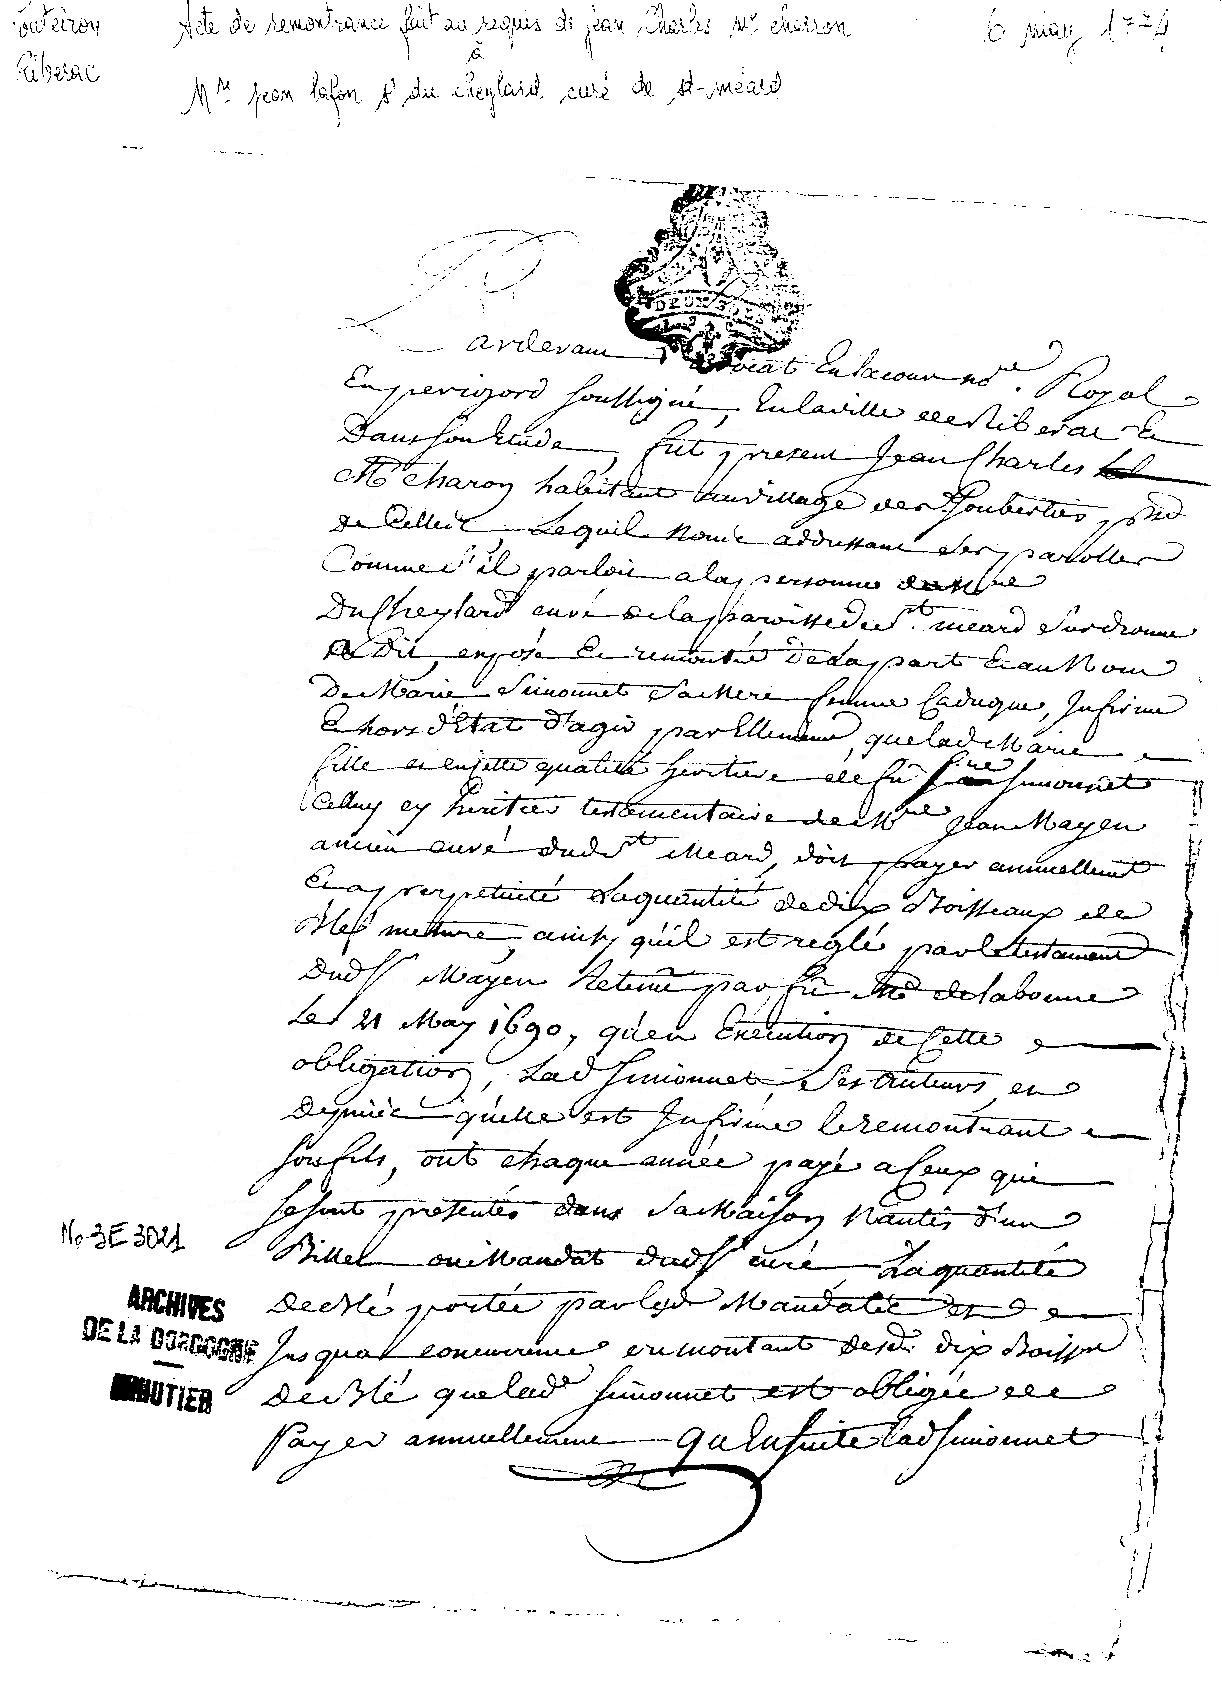 Pouteiron Acte de remontrance fait au requis de jean Charles Me charron 6 may 1774
Riberac à
Mre jean lafon Sr du cheylard curé de st-méard
DEUX SOLS
Pardevant avocat En la cour nore Royal
En perigord soussigné, En la ville de Riberac Et
Dans son Etude, fut present Jean Charles
Me charon habitant au village des Jouberties psse
de Celles, Lequel nous addressant ses parolles
Comme s'il parloit a la personne de Mre
Du Cheylard curé de la parroisse de St meard sur dronne
A Dit, exposé Et remontré De la part Et au Nom
De Marie Simonnet Sa Mere femme Caduque, Infirme
Et hors d'Etat d'agir par Elle meme, que lad Marie
fille et en cette qualité heritiere de fû Simonnet
Celluy cy heritier testamentaire de Mre Jean Mayen
ancien curé dud St Meard, doit payer annuellemt
Et a perpetuité La quantité de dix Boisseaux de
Bled mesture, ainsy qu'il est reglé par le testament
Dud Sr Mayen Retenu par fû Me de labonne
Le 21 May 1690, qu'en Execution de Cette
obligation, Lad Simonnet, Ses auteurs, et
Depuis qu'elle est Infirme le remontrant
son fils, ont chaque année payé a Ceux qui
se sont presentés dans Sa Maison Nantis d'un
Billet ou Mandat dud Sr curé, La quantité
De Blé portée par led Mandat et
Jusqu'a concurrence et montant desd. dix Boissx
De Blé que lade Simonnet est obligée de
Payer annuellement Qu'Ensuite lad Simonnet
No 3E 3021
ARCHIVES
DE LA DORDOGNE
MINUTIER